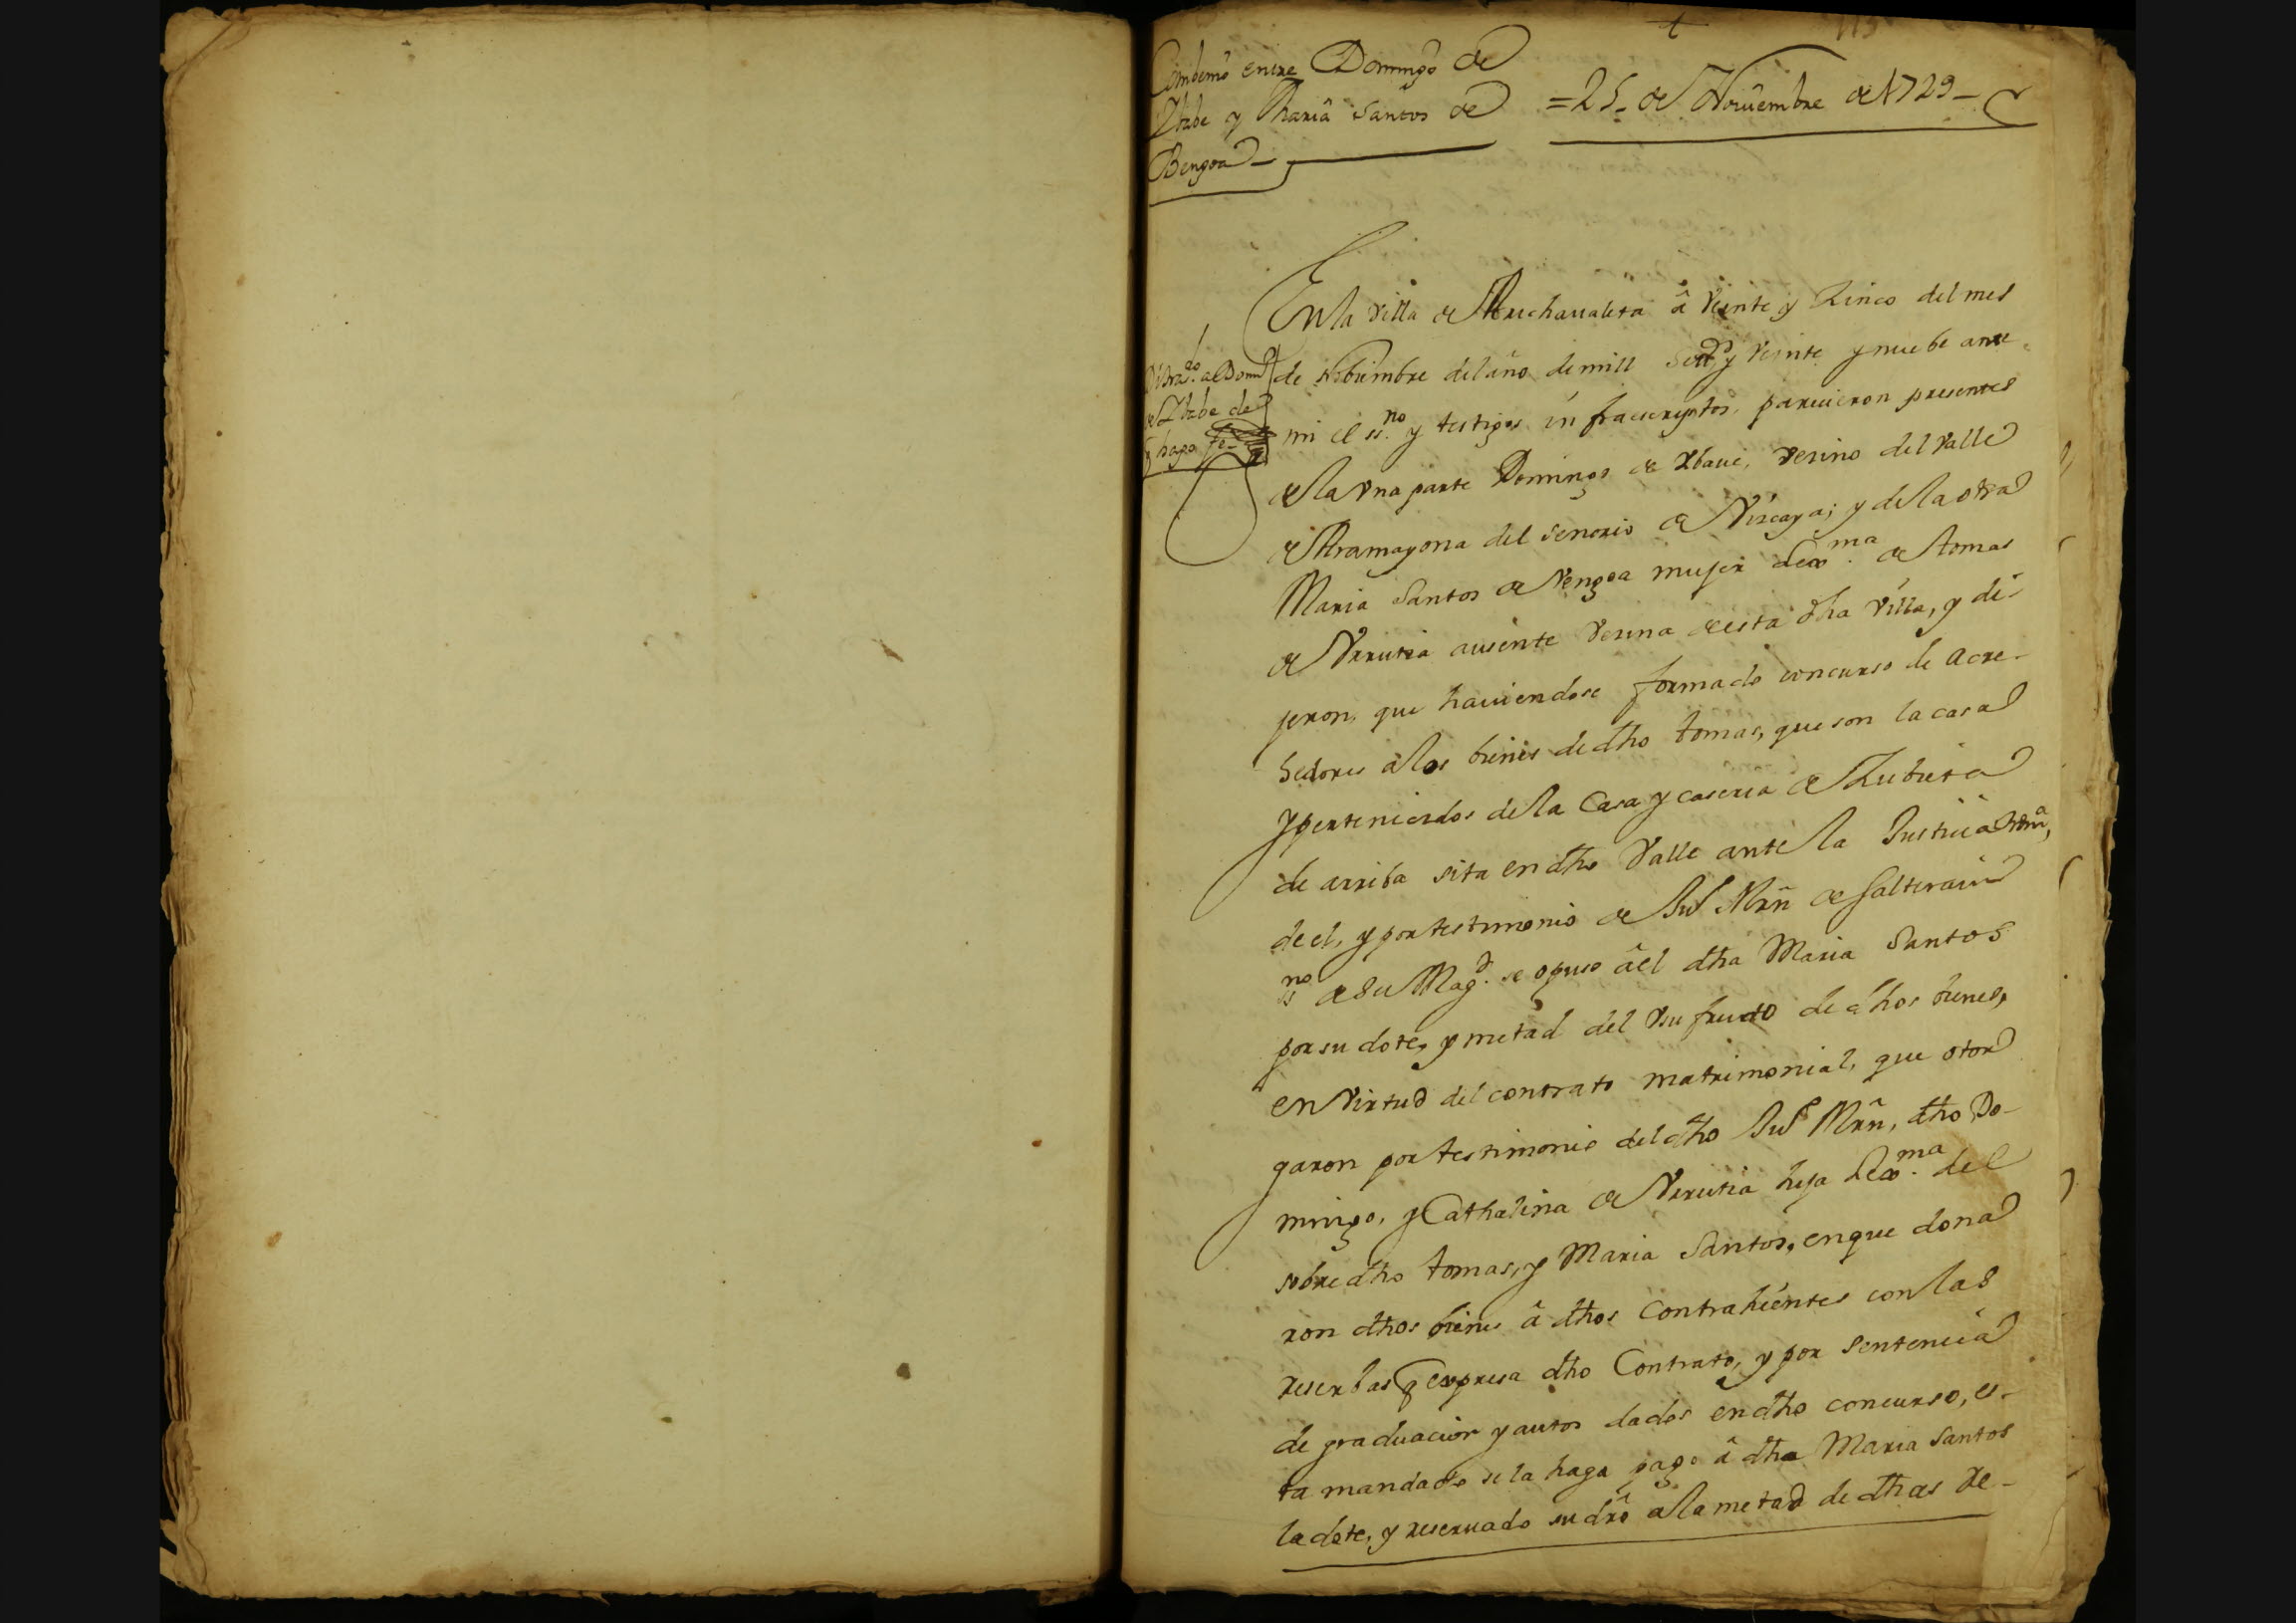 113
Combenio entre Domingo de
Ybabe y Maria Santos de
Bengoa
=25 de Nouiembre de 1729
En la villa de Arechaualeta â Veinte y Zinco del mes
de Nobiembre del año de mill Setts y Veinte y nuebe ante
mi el ssno y testigos infraescryptos, parecieron presentes
de la Vna parte Domingo de Ybaue, Vezino del Valle
de Aramayona del Senorio de Vizcaya; y de la otra
Maria Santos de Vengoa mujer lexma. de Tomas
de Vrrutia ausente Vezina de esta dha Villa, y di-
jeron, que hauiendose formado concurso de acre-
hedores a los bienes de dho Tomas, que son la casa
y pertenecidos de la Casa y caseria de Zubieta
de arriba sita en dho Valle ante la Justicia hordna,
de el, y por testimonio de Juº Mrn de Salterain
ssno de Su Magd. se opuso âel dha Maria Santos
por su dote, y metad del Vsufructo de dhos bienes,
en Virtud del contrato matrimonial, que otor
garon por testimonio del dho Juº Mrn, dho Do-
mingo, y Cathalina de Vrrutia hija lexma. del
sobre dho Tomas, y Maria Santos, en que dona
ron dhos bienes â dhos Contrahientes con las
reserbas q expresa dho Contrato, y por Sentencia
de graduacion y autos dados en dho concurso, es-
ta mandado se la haga pago â dha Maria Santos
la dote, y reseruado su drô a la metad de dhas Re-
de Ybabe de
hago fe